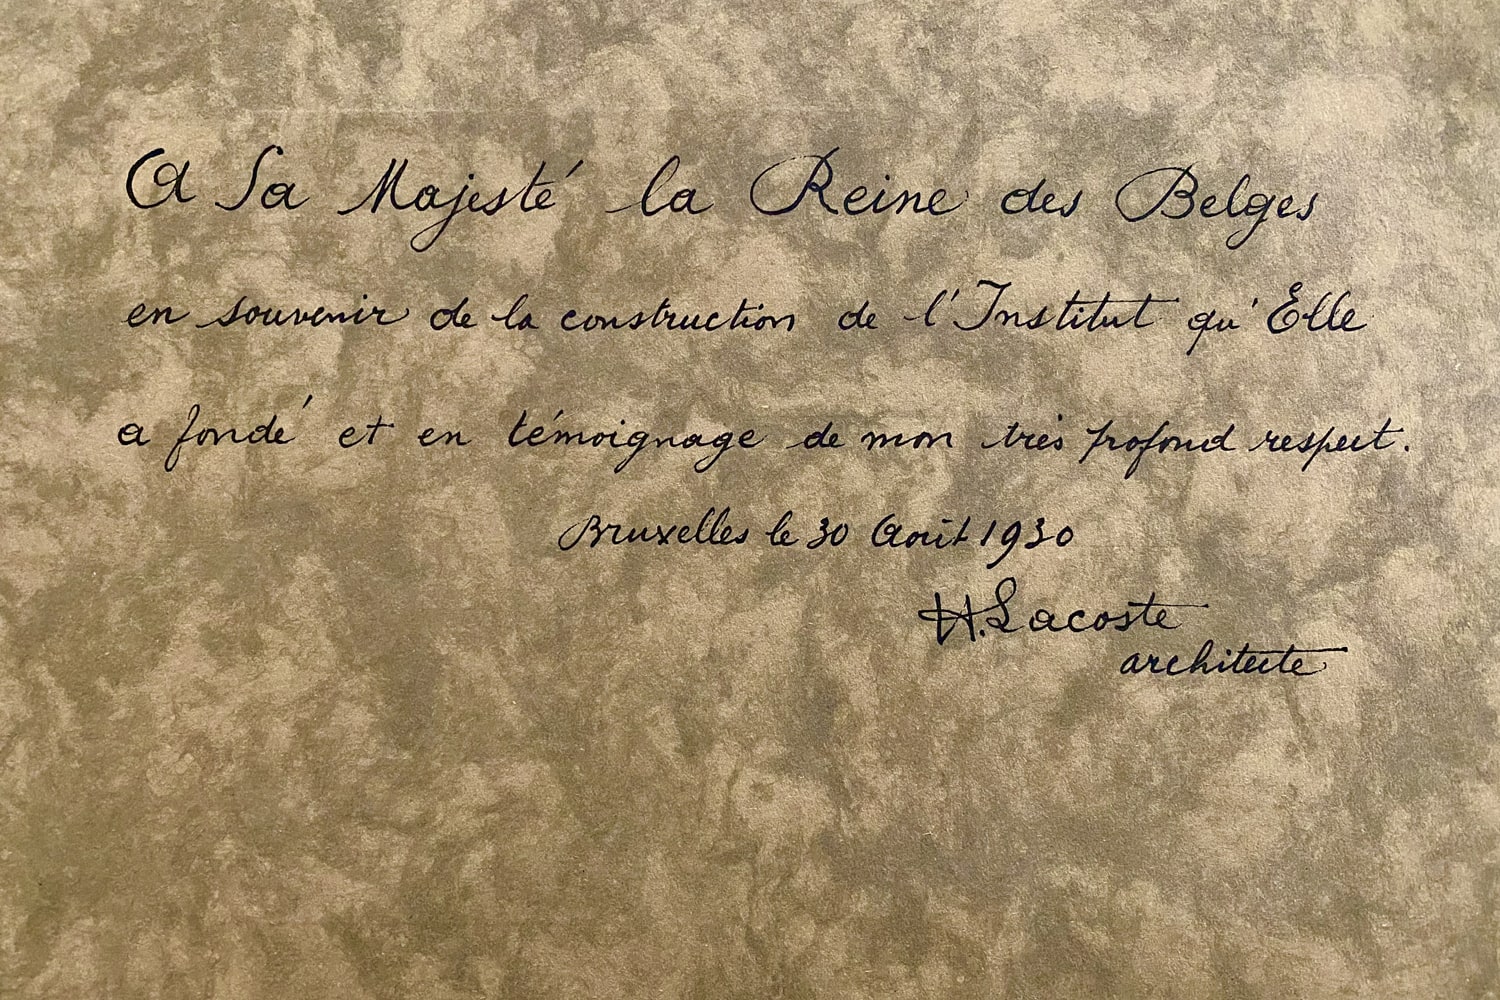 A Sa Majesté la Reine des Belges
en souvenir de la construction de l'Institut qu'Elle
a fondé et en témoignage de mon très profond respect.
Bruxelles le 30 Août 1930
H. Lacoste
architecte